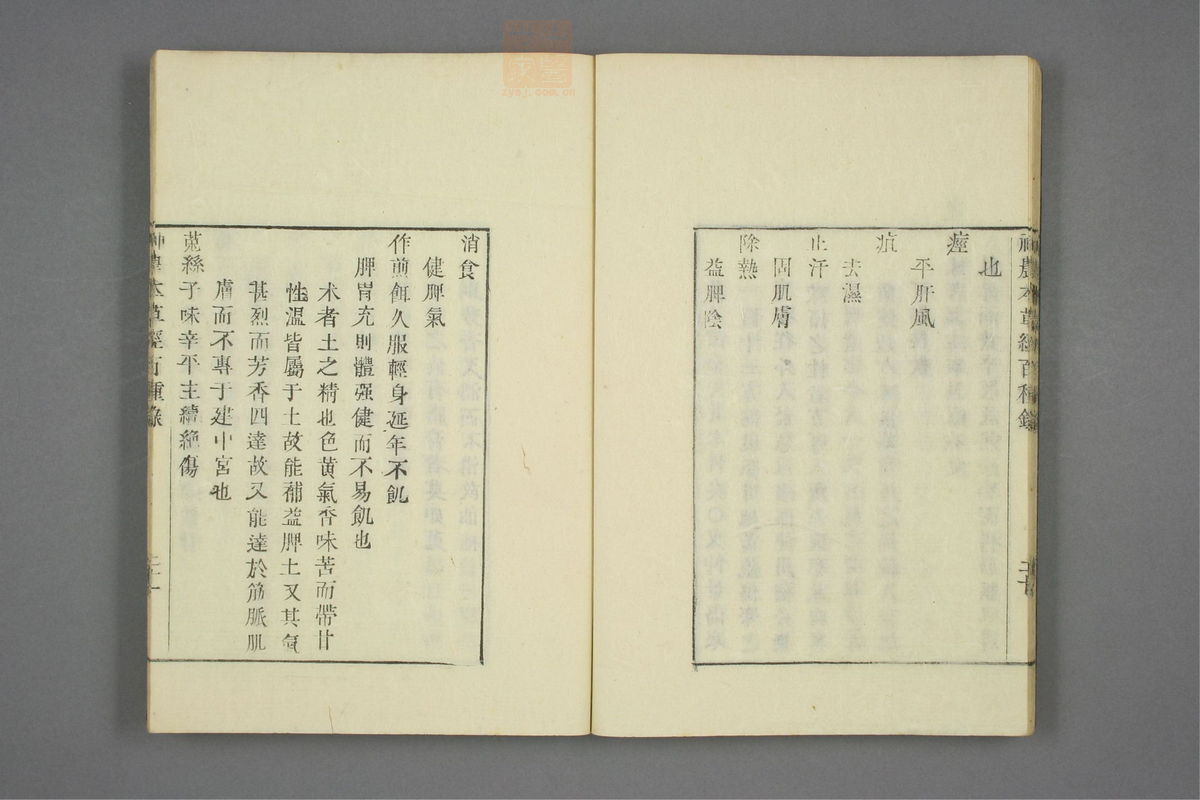 神農本草經百種錄
也
痙
平肝風
疽
去濕
止汗
固肌膚
除熱
益脾陰
消食
健脾氣
作煎餌久服輕身延年不飢
脾胃充則體强健而不易飢也
术者土之精也色黄氣香味苦而帶甘
性温皆屬于土故能補益脾土又其氣
甚烈而芳香四達故又能達於筋脈肌
膚而不專于建中宮也
菟絲子味辛平主續絶傷
神農本草經百種錄
zysj.com.cn